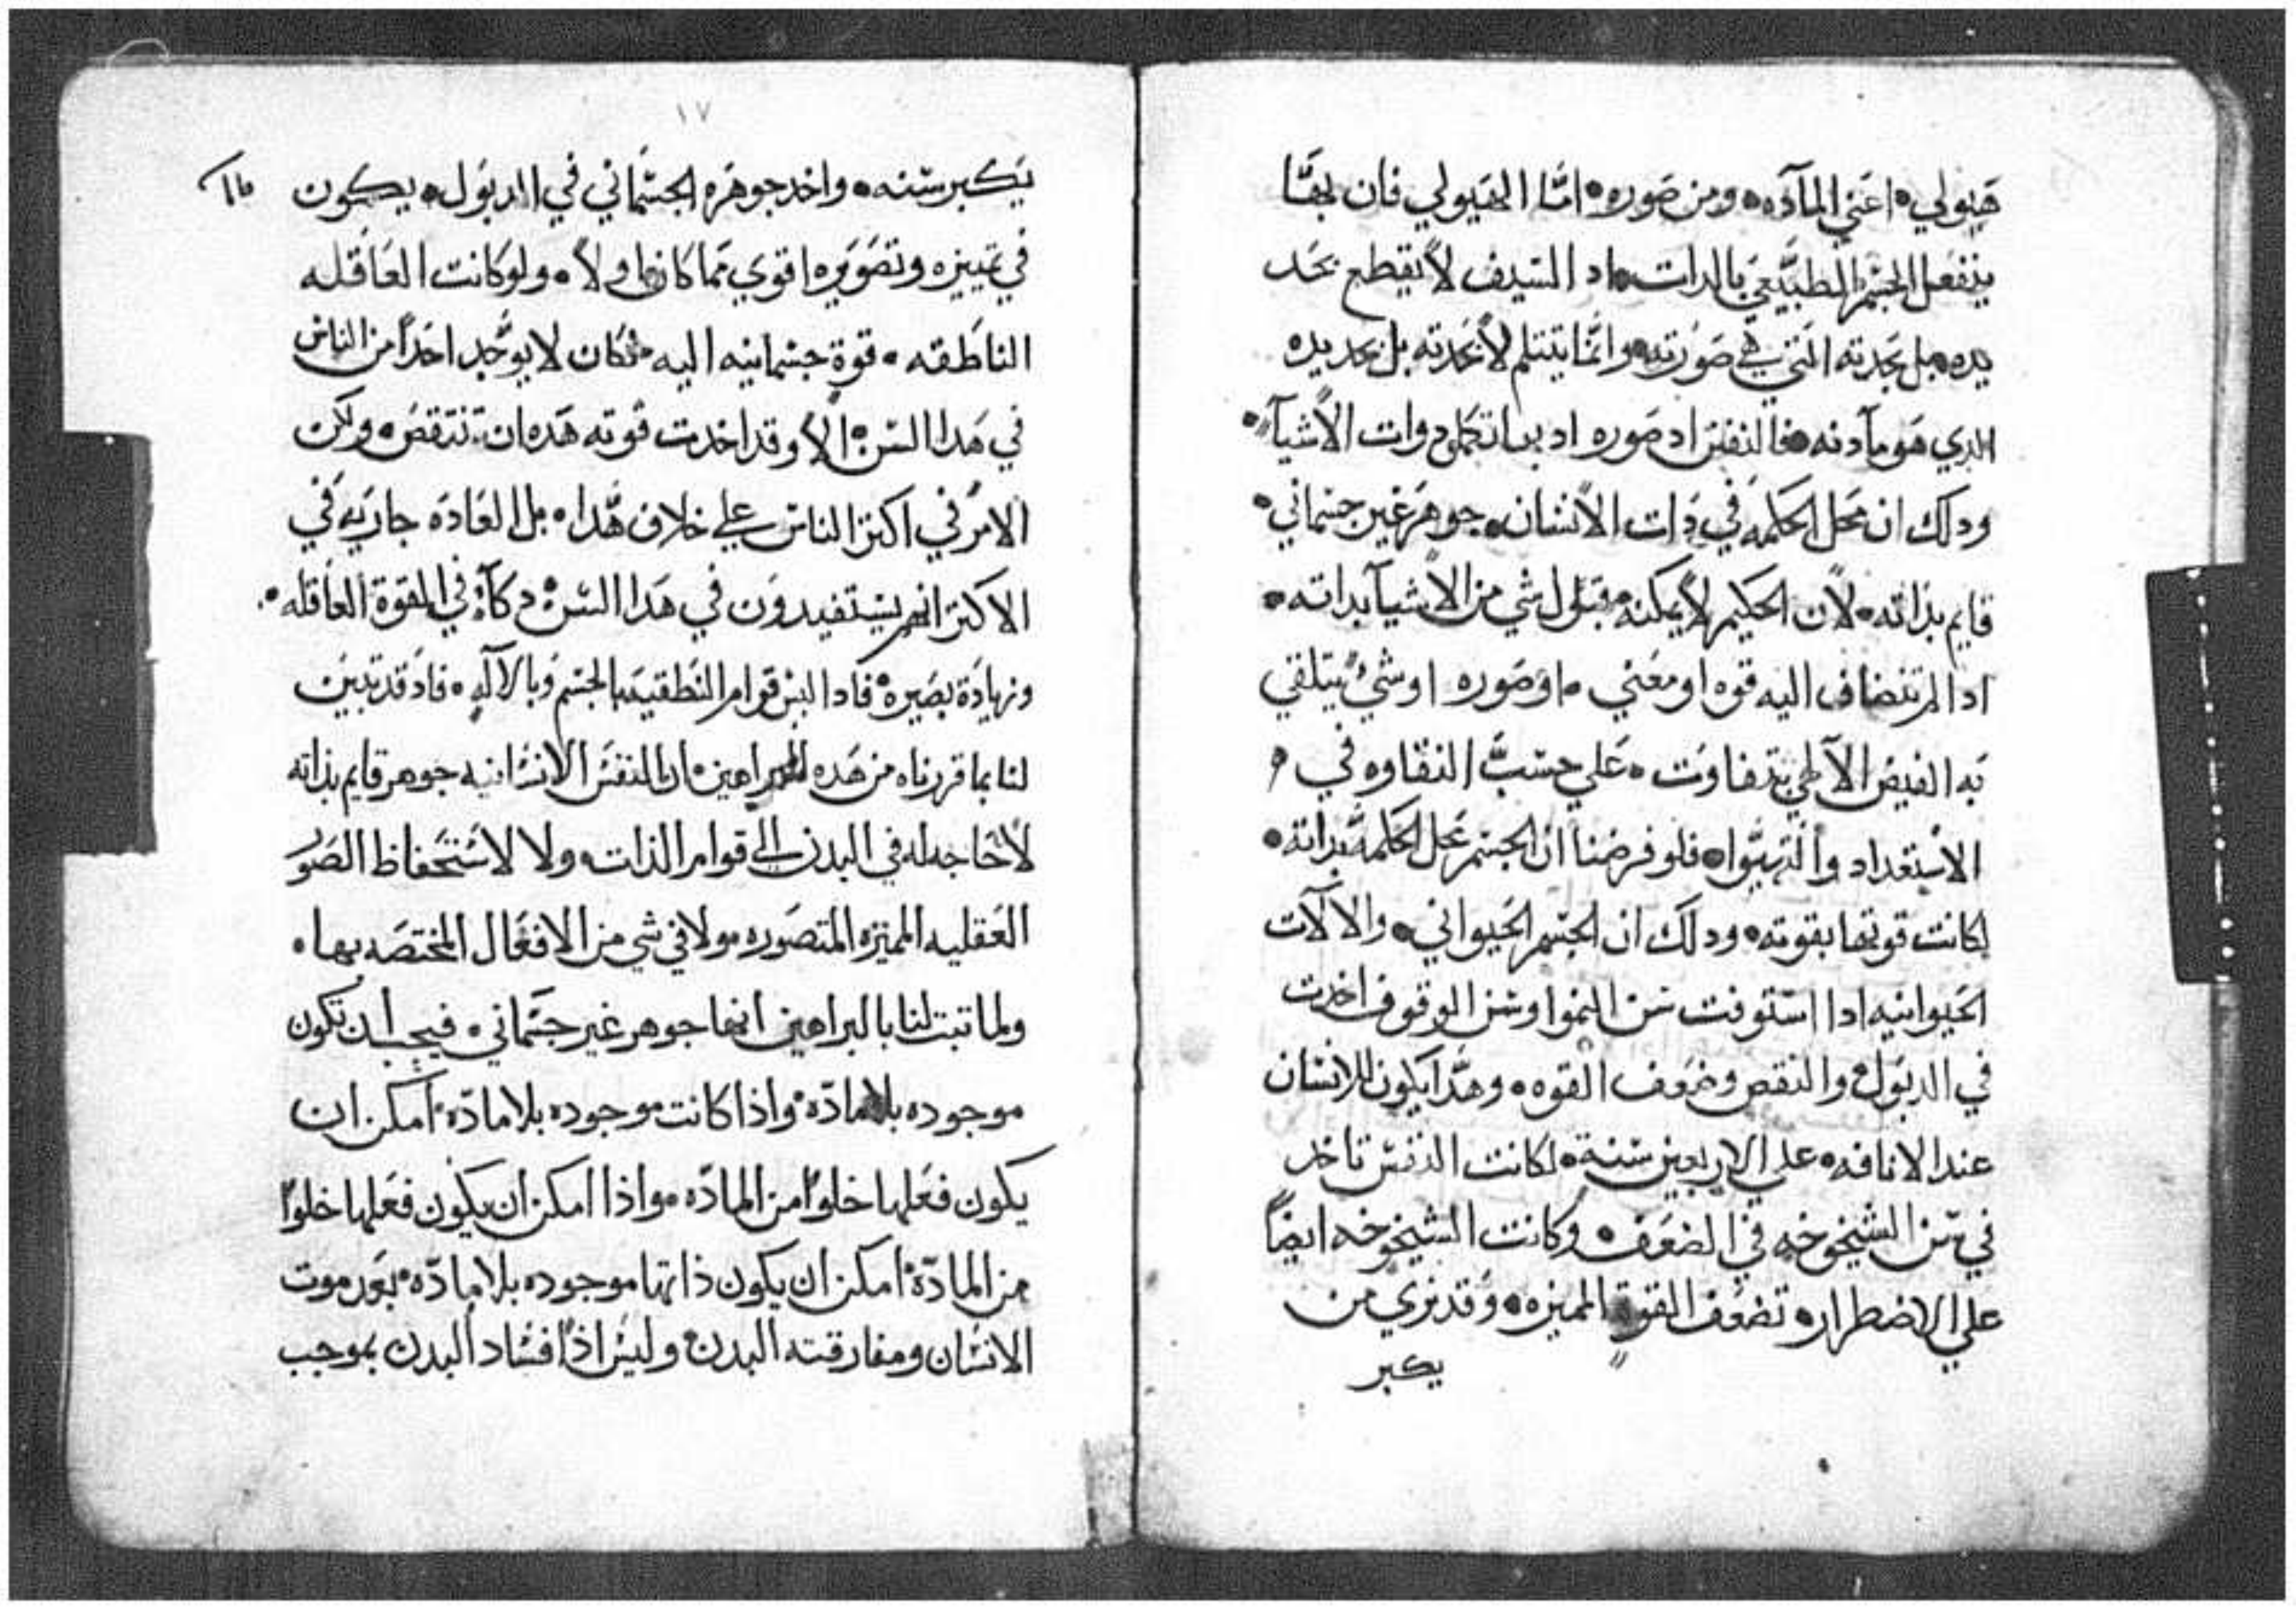 هيولي اعني المآده ومن صوره امّا الهيولي فان بها
ينفعل الجسم الطبيعي بالدات اد السيف لا يقطع بحد
يده بل بحدته التي في صورته وانما يتثلم لا بحدته بل بحديده
الدي هو مآدته فالنفس اد صوره اد بها تكمل دوات الاشيآ
ودلك ان محل الحكمه في دات الانسان جوهر غير جسماني
قايم بذاته لان الحكيم لا يمكنه قبول شي من الاشيآ بداته
ادا لم تنضاف اليه قوه او معني او صوره او شيء يتلقي
به الفيض الآلهي بتفاوت علي حسب النقاوه في
الاستعداد والتهيوا فلو فرضنا ان الجسم محل الحكمه بداته
لكانت قوتها بقوته ودلك ان الجسم الحيواني والالآت
الحيوانيه ادا استوفت سن النموا وسن الوقوف اخدت
في الدبول والنقص وضعف القوه وهدا يكون للانسان
عند الانافه علي الاربعين سنة لكانت النفس تاخد
في سن الشيخوخه في الضعف وكانت الشيخوخه ايضاً
علي الاضطرار تضعف القوة المميزه وقد نري من
يكبر
١٧
يكبر سنه واخد جوهره الجسماني في الدبول يكون
في تمييزه وتصويره اقوي مما كان اولاً ولو كانت العاقله
الناطقه قوة جسمانيه اليه فكان لا يوجد احداً من الناس
في هدا السن الا وقد اخدت قوته هده ان تنتقص ولكن
الامر في اكثر الناس علي خلاف هدا بل العاده جاريه في
الاكثر انهم يستفيدون في هدا السن دكآء في القوة العاقله
وزيادة بصيره فادا ليس قوام النطقيه بالجسم وبالآله فاد قد تبين
لنا بما قررناه من هده البراهين ان النفس الانسانيه جوهر قايم بذاته
لا حاجه له في البدن الي قوام الذات ولا لاستحفاظ الصور
العقليه المميزه المتصوره ولا في شي من الافعال المختصه بها
ولما تبت لنا بالبراهين انها جوهر غير جسماني فيجب ان تكون
موجوده بلا مادّه واذا كانت موجوده بلا مادّه امكن ان
يكون فعلها خلوا من المادّه واذا امكن ان يكون فعلها خلوا
من المادّة امكن ان يكون ذاتها موجوده بلا مادّه بعد موت
الانسان ومفارقته البدن وليس اذا فساد البدن بموجب